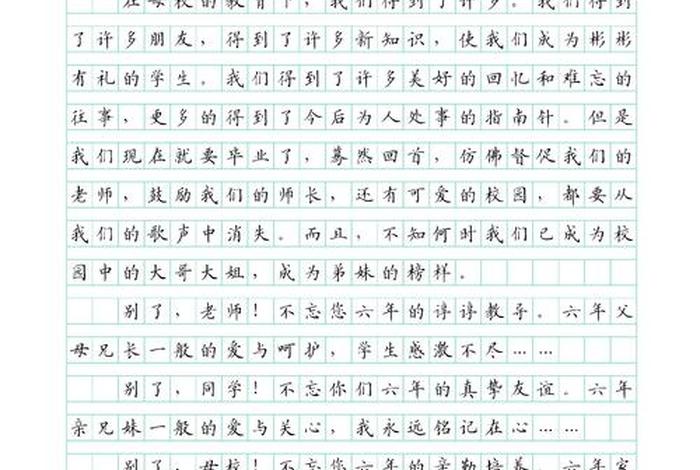 在母校的教育下，我们得到了许多。我们得到
了许多朋友，得到了许多新知识，使我们成为彬彬
有礼的学生。我们得到了许多美好的回忆和难忘的
往事，更多的得到了今后为人处事的指南针。但是
我们现在就要毕业了，蓦然回首，仿佛督促我们的
老师，鼓励我们的师长，还有可爱的校园，都要从
我们的歌声中消失。而且，不知何时我们已成为校
园中的大哥大姐，成为弟妹的榜样。
别了，老师！不忘您六年的谆谆教导。六年父
母兄长一般的爱与呵护，学生感激不尽……
别了，同学！不忘你们六年的真挚友谊。六年
亲兄妹一般的爱与关心，我永远铭记在心……
别了，母校！不忘您六年的辛勤培养。六年家